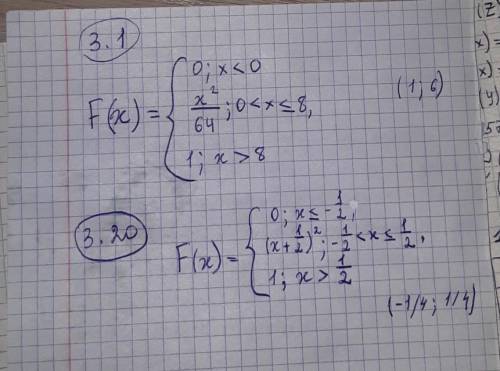 3.1
F(x) = { 0; x<0
x²/64; 0<x≤8,
1; x>8
(1; 6)
3.20
F(x) = { 0; x≤-1/2,
(x+1/2)²; -1/2<x≤1/2,
1; x>1/2
(-1/4; 1/4)